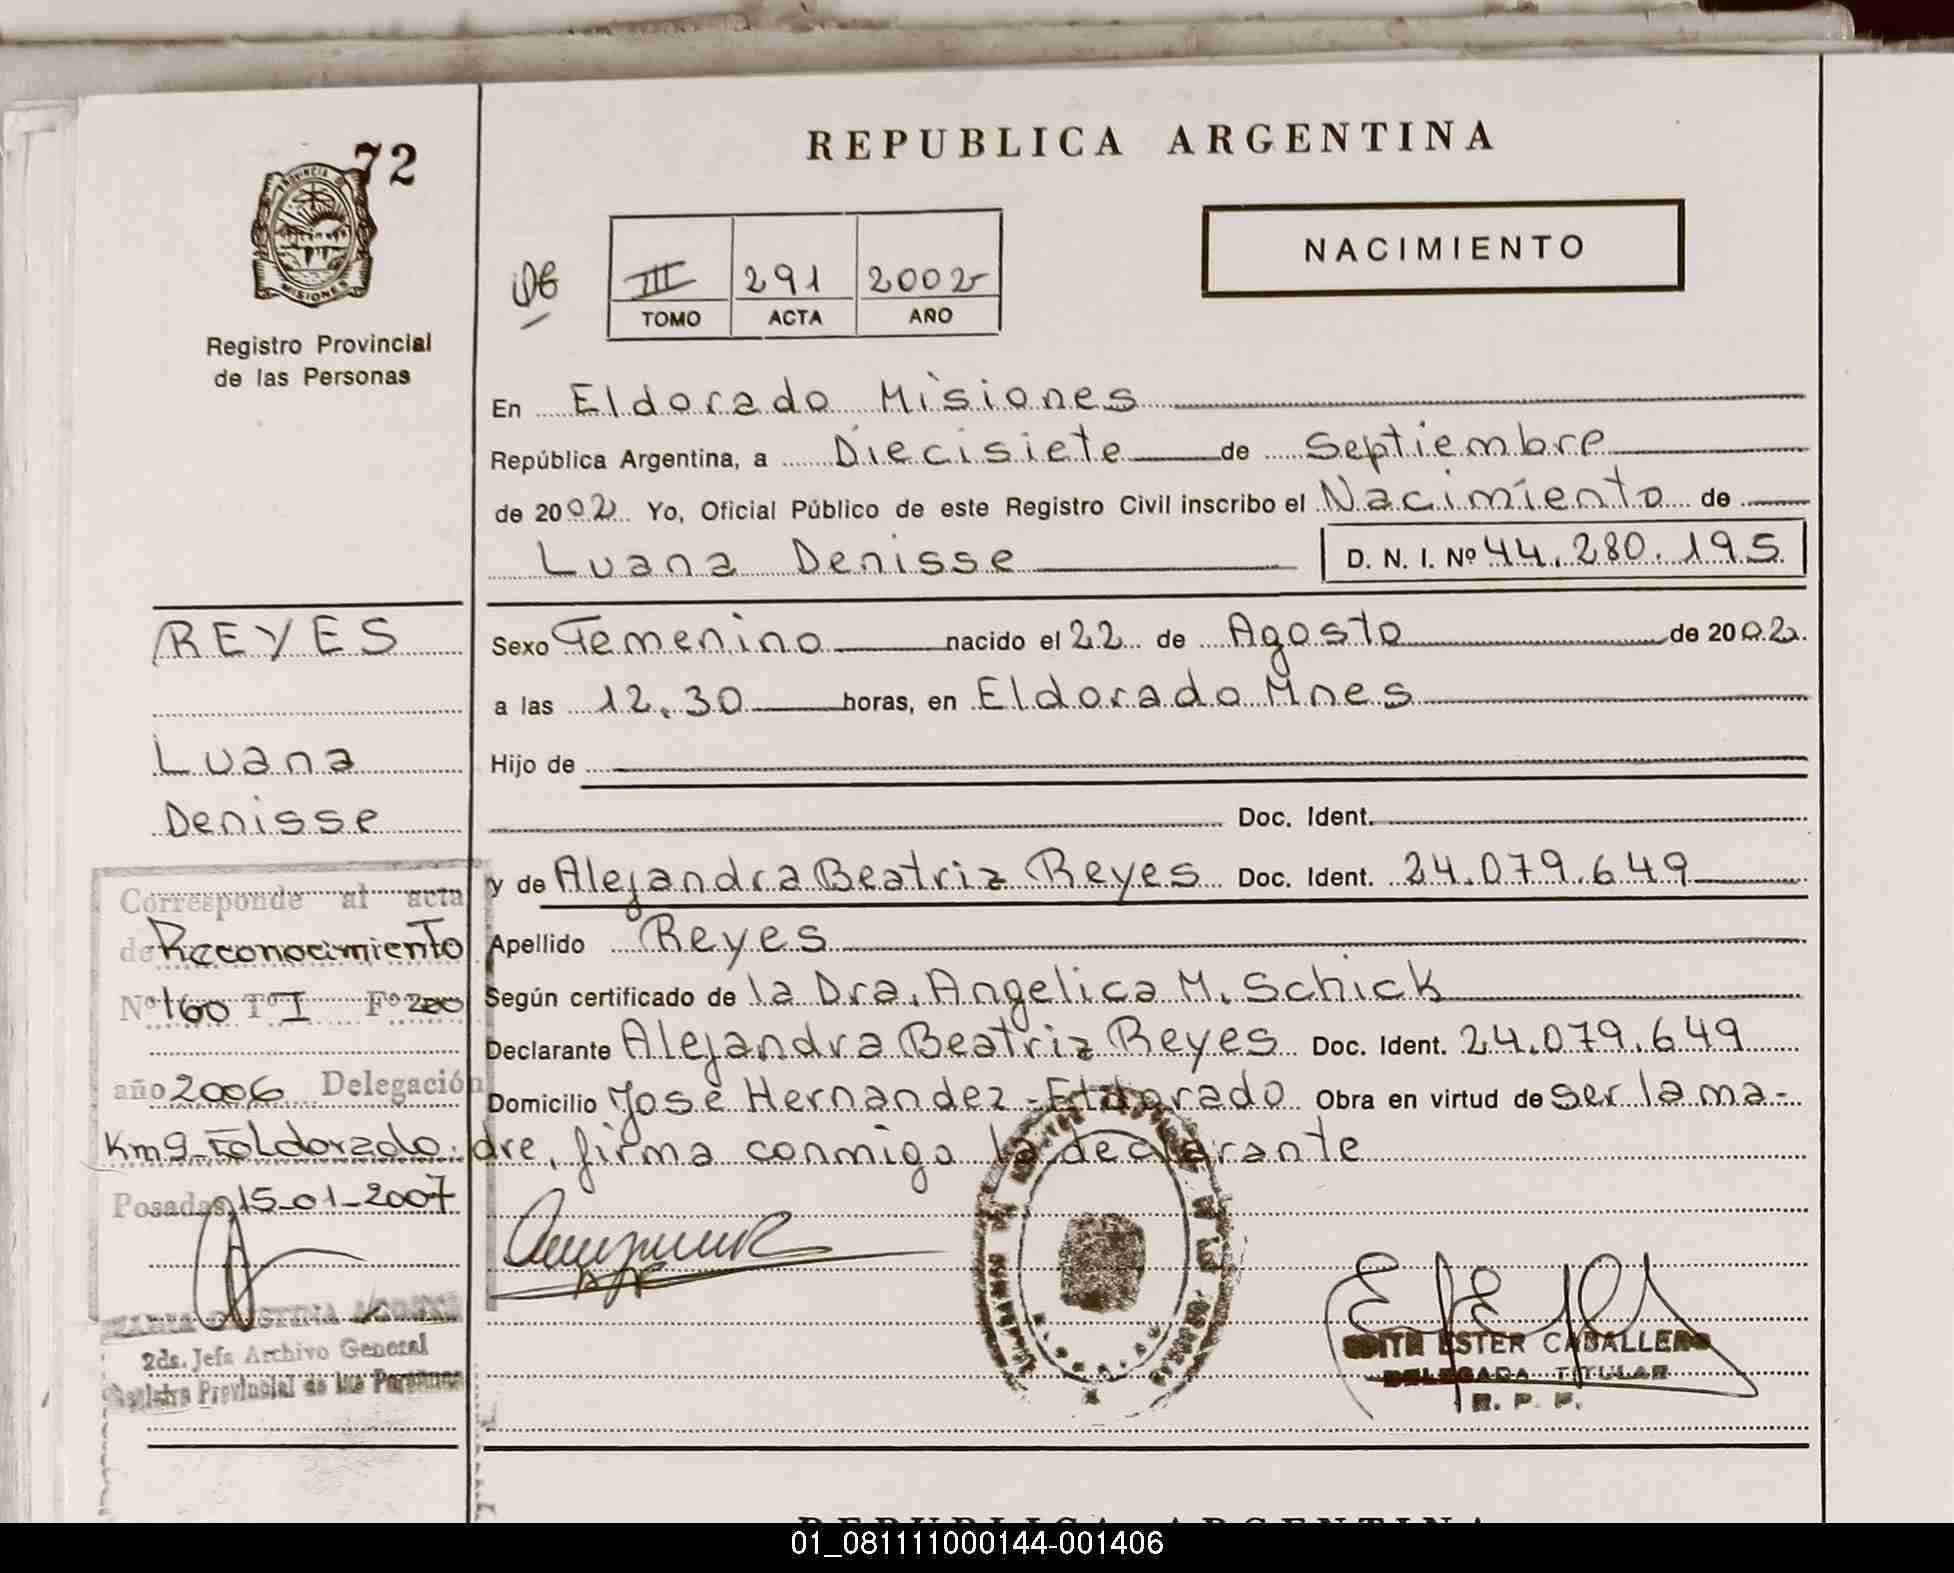 72
PROVINCIA DE
MISIONES
Registro Provincial
de las Personas
REPUBLICA ARGENTINA
NACIMIENTO
III 291 2002
TOMO ACTA AÑO
En Eldorado Misiones
República Argentina, a Diecisiete de Septiembre
de 2002 Yo, Oficial Público de este Registro Civil inscribo el Nacimiento de
Luana Denisse D. N. I. Nº 44.280.195
REYES
Luana
Denisse
Sexo Femenino nacido el 22 de Agosto de 2002.
a las 12.30 horas, en Eldorado Mnes
Hijo de
Doc. Ident.
y de Alejandra Beatriz Reyes Doc. Ident. 24.079.649
Apellido Reyes
Según certificado de la Dra. Angelica M. Schick
Declarante Alejandra Beatriz Reyes Doc. Ident. 24.079.649
Domicilio José Hernandez - Eldorado Obra en virtud de ser la ma-
dre, firma conmigo la declarante
Corresponde al acta
de Reconocimiento
Nº 160 Tº I Fº 200
año 2006 Delegación
Km 9 - Eldorado.
Posadas, 15-01-2007
2da. Jefa Archivo General
Registro Provincial de las Personas
EDITH ESTER CABALLERO
DELEGADA TITULAR
R. P. P.
REPUBLICA ARGENTINA
01_081111000144-001406